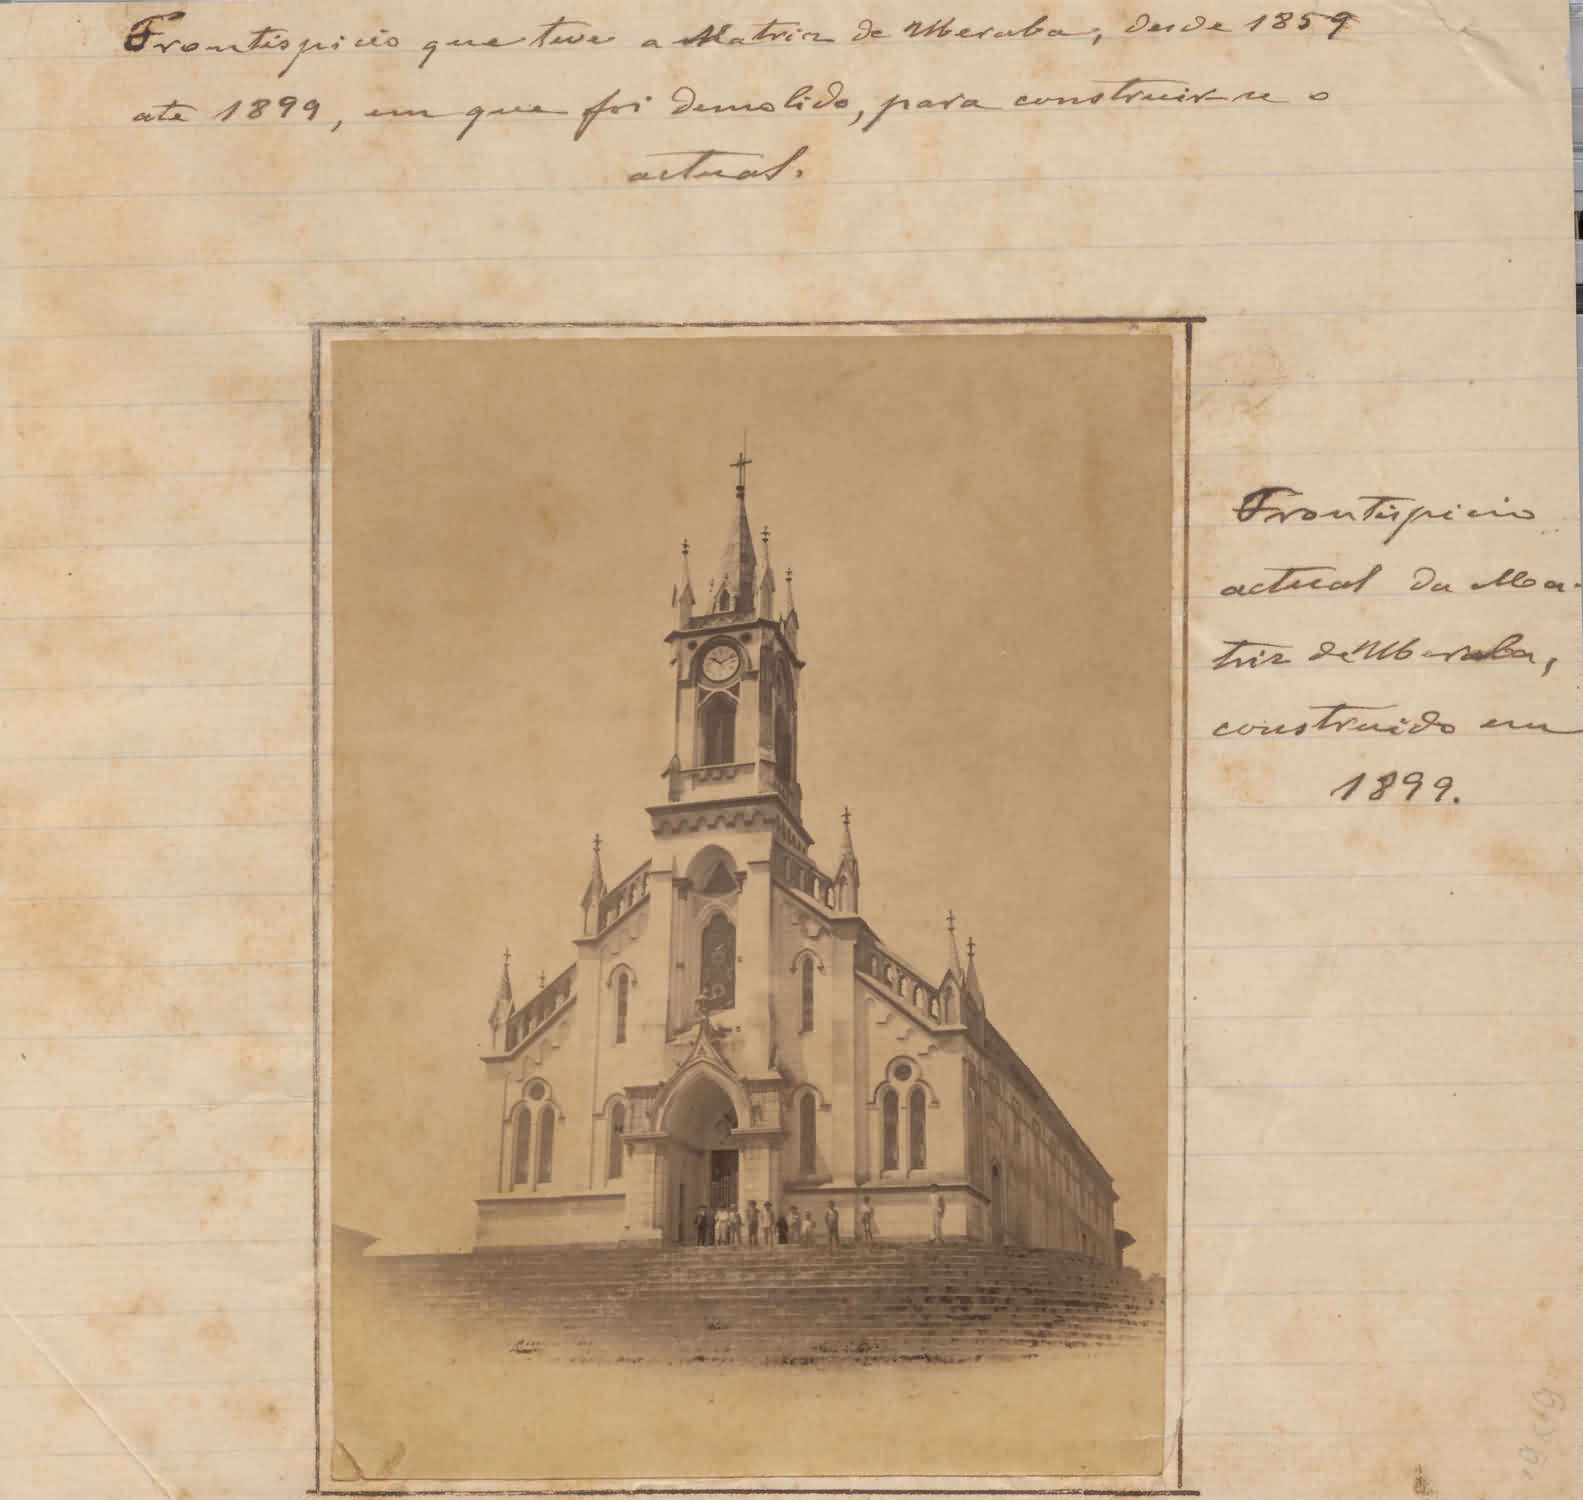 Frontispicio que teve a Matriz de Uberaba, desde 1859
ate 1899, em que foi demolido, para construir-se o
actual.
Frontispicio
actual da Ma-
triz de Uberaba,
construido em
1899.